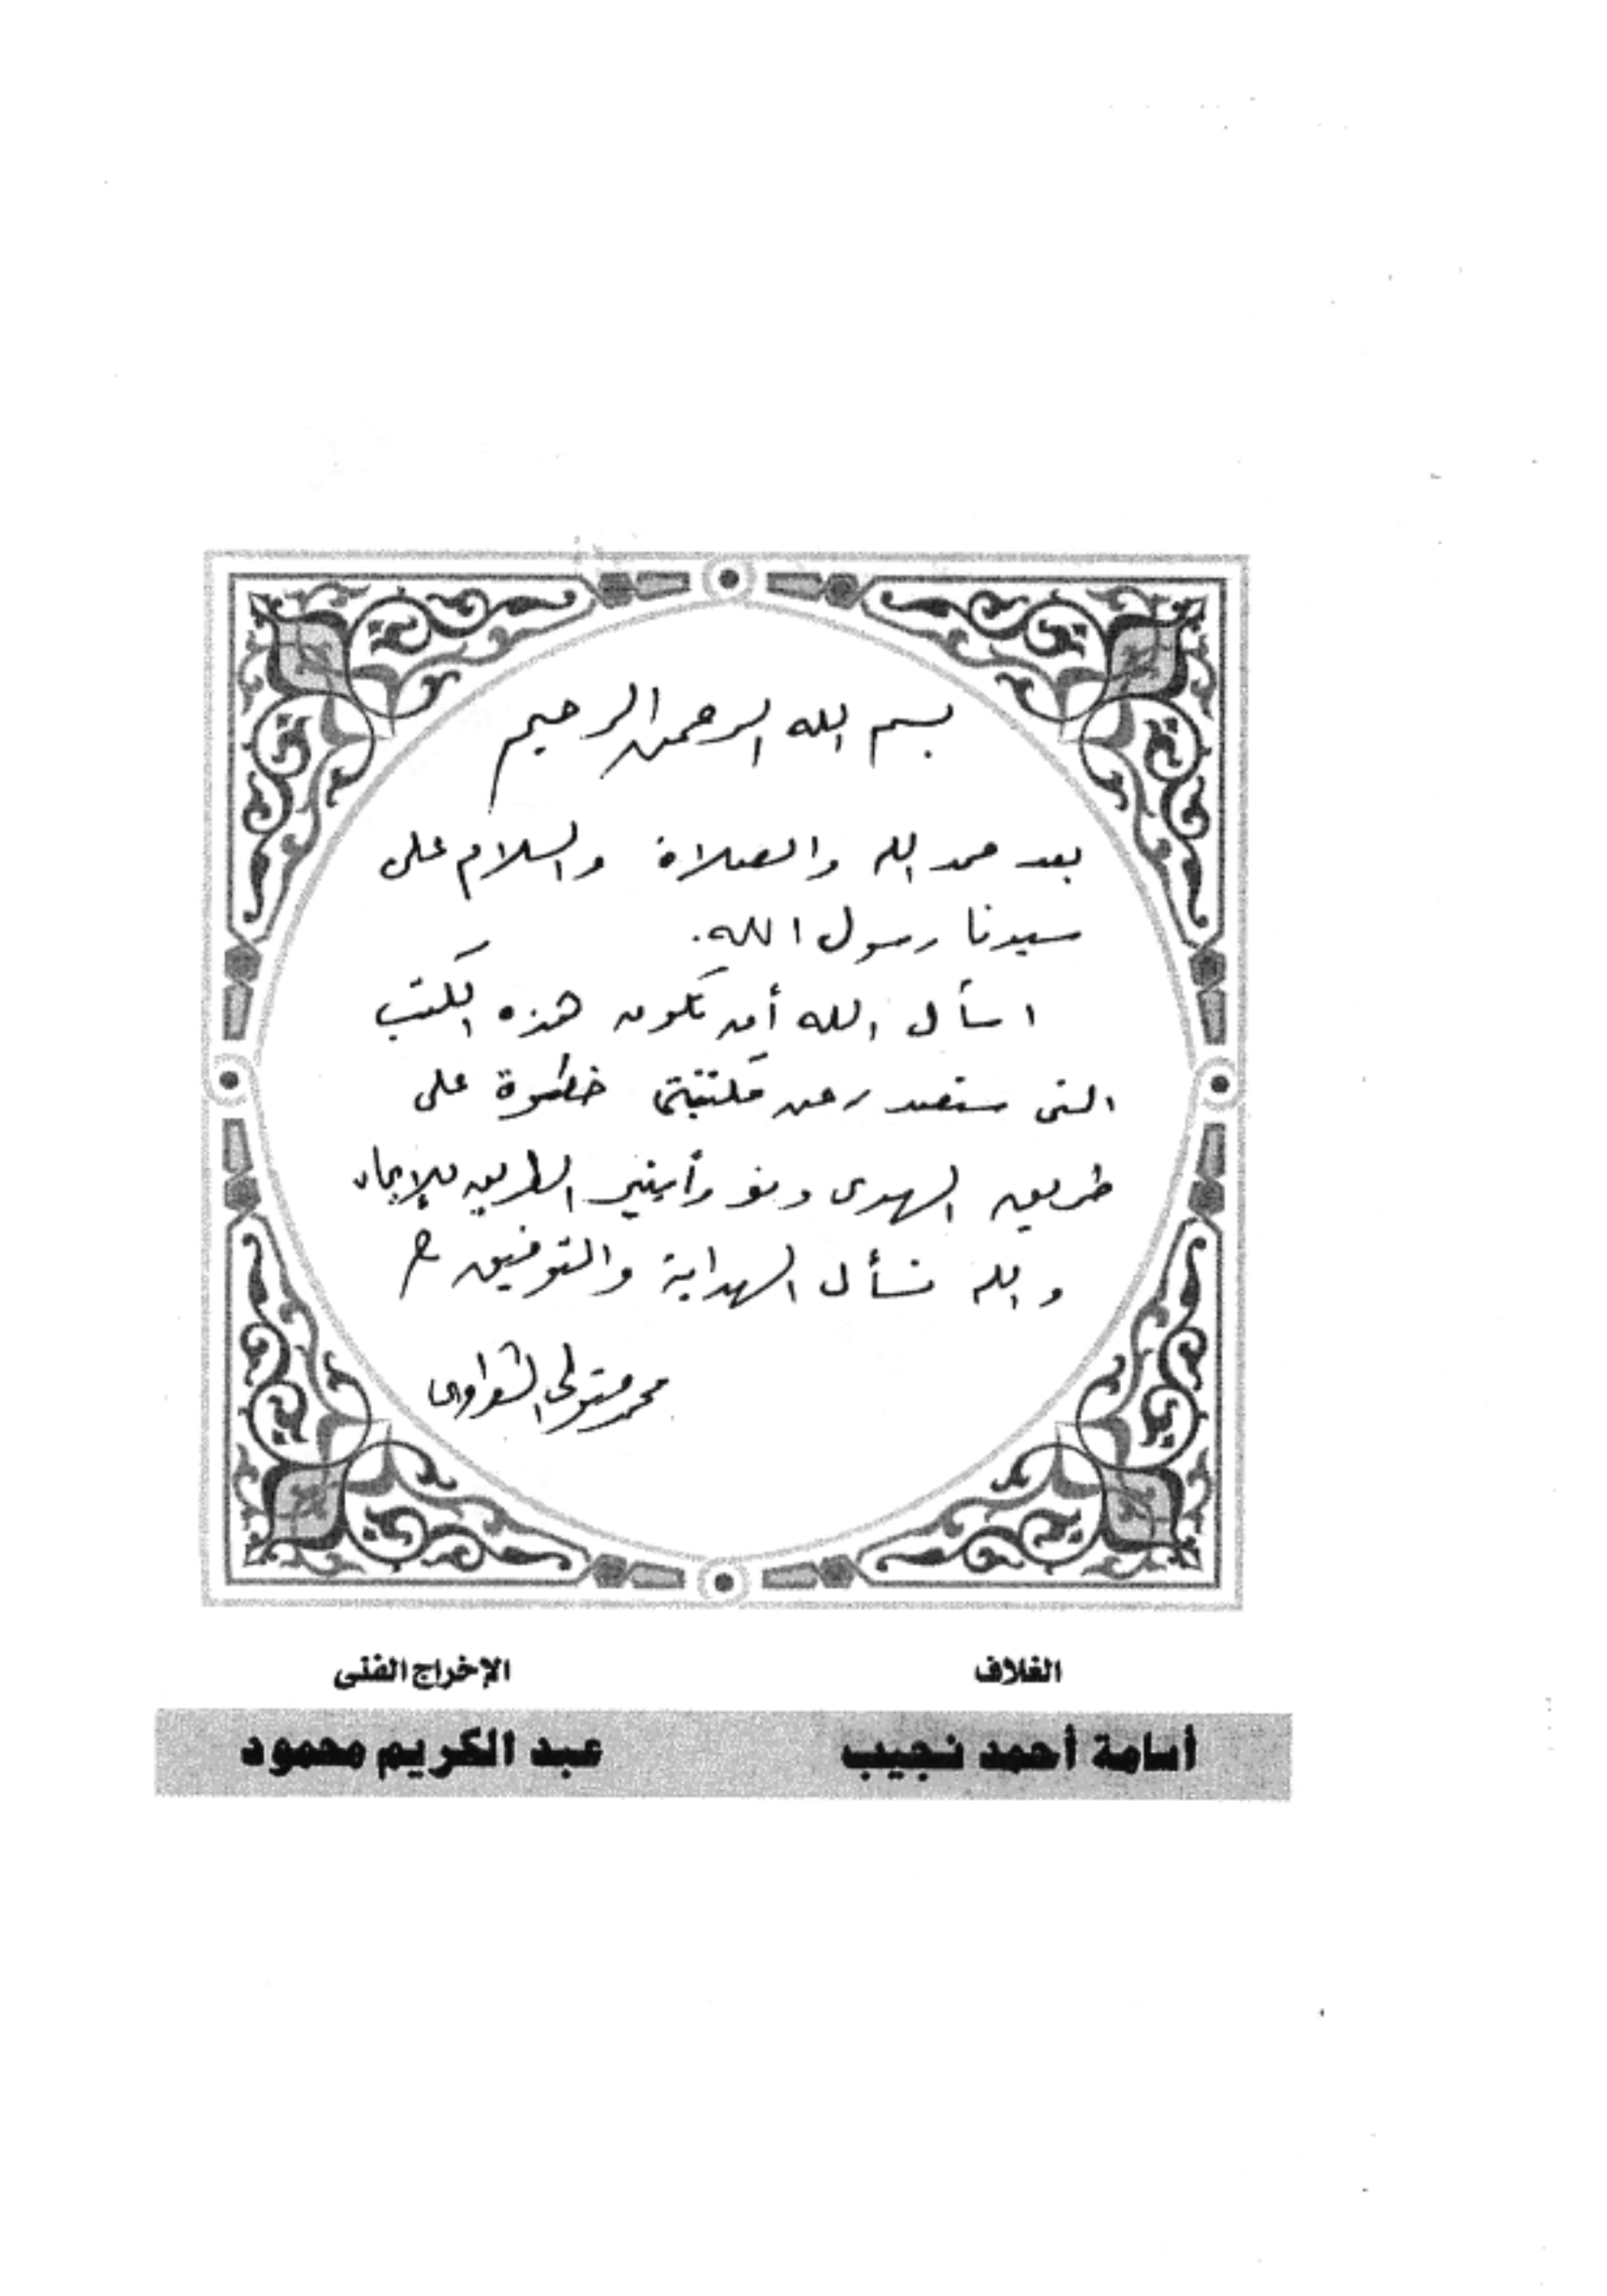 بسم الله الرحمن الرحيم
بعد حمد الله والصلاة والسلام على
سيدنا رسول الله.
اسأل الله أن تكون هذه الكتب
التى ستصدر عن مكتبتى خطوة على
طريق الهدى ونور أينير الطريق للإيمان
والله نسأل الهداية والتوفيق
محمد متولى الشعراوى
الغلاف
الإخراج الفنى
أسامة أحمد نجيب
عبد الكريم محمود